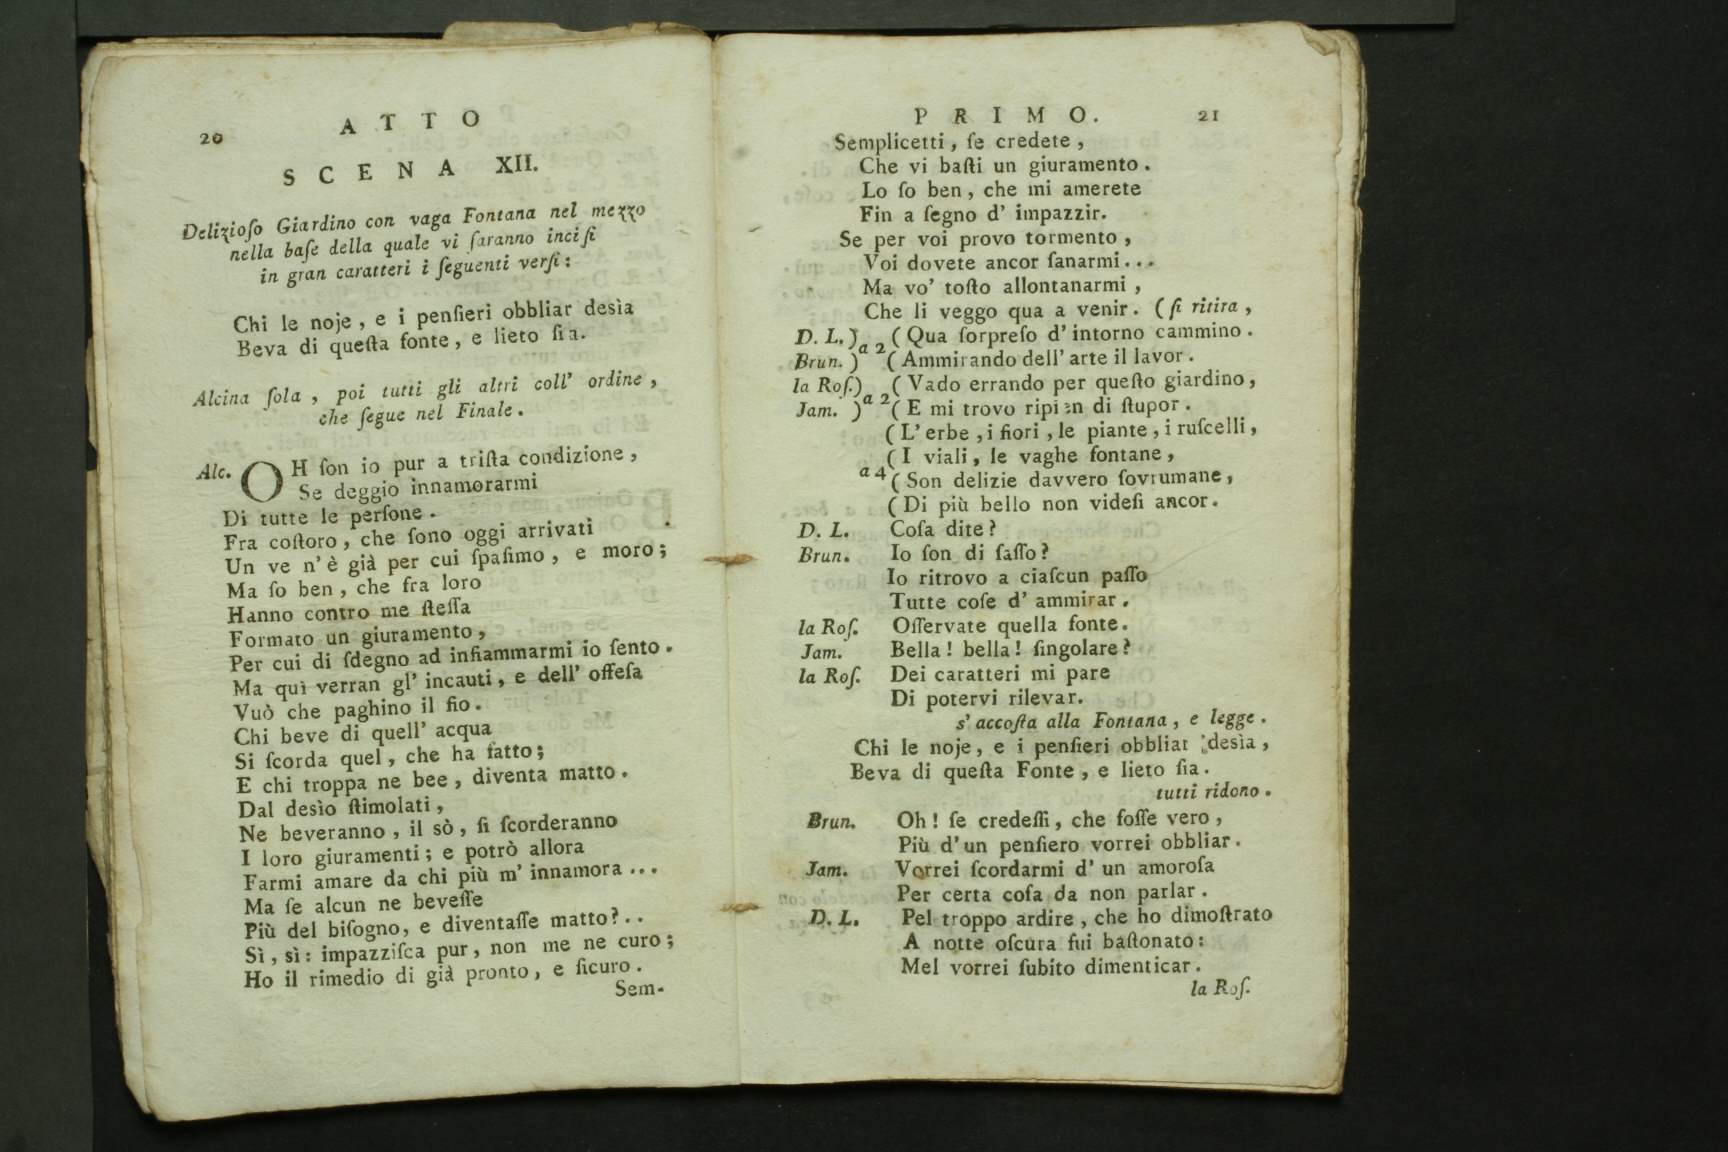 20
ATTO
SCENA XII.
Delizioſo Giardino con vaga Fontana nel mezzo
nella baſe della quale vi ſaranno inciſi
in gran caratteri i ſeguenti verſi:
Chi le noje, e i penſieri obbliar desìa
Beva di queſta fonte, e lieto ſia.
Alcina ſola, poi tutti gli altri coll' ordine,
che ſegue nel Finale.
Alc. OH ſon io pur a triſta condizione,
Se deggio innamorarmi
Di tutte le perſone.
Fra coſtoro, che ſono oggi arrivati
Un ve n'è già per cui ſpaſimo, e moro;
Ma ſo ben, che fra loro
Hanno contro me ſteſſa
Formato un giuramento,
Per cui di ſdegno ad infiammarmi io ſento.
Ma quì verran gl' incauti, e dell' offeſa
Vuò che paghino il fio.
Chi beve di quell' acqua
Si ſcorda quel, che ha fatto;
E chi troppa ne bee, diventa matto.
Dal desìo ſtimolati,
Ne beveranno, il sò, ſi ſcorderanno
I loro giuramenti; e potrò allora
Farmi amare da chi più m' innamora...
Ma ſe alcun ne beveſſe
Più del biſogno, e diventaſſe matto?..
Sì, sì: impazziſca pur, non me ne curo;
Ho il rimedio di già pronto, e ſicuro.
Sem-
PRIMO.
21
Semplicetti, ſe credete,
Che vi baſti un giuramento.
Lo ſo ben, che mi amerete
Fin a ſegno d' impazzir.
Se per voi provo tormento,
Voi dovete ancor ſanarmi...
Ma vo' toſto allontanarmi,
Che li veggo qua a venir. (ſi ritira,
D. L.) a 2 (Qua ſorpreſo d' intorno cammino.
Brun.) (Ammirando dell' arte il lavor.
la Roſ.) a 2 (Vado errando per queſto giardino,
Jam. ) (E mi trovo ripien di ſtupor.
(L' erbe, i fiori, le piante, i ruſcelli,
(I viali, le vaghe fontane,
a 4 (Son delizie davvero ſovrumane,
(Di più bello non videſi ancor.
D. L. Coſa dite?
Brun. Io ſon di ſaſſo?
Io ritrovo a ciaſcun paſſo
Tutte coſe d' ammirar.
la Roſ. Oſſervate quella fonte.
Jam. Bella! bella! ſingolare?
la Roſ. Dei caratteri mi pare
Di potervi rilevar.
s' accoſta alla Fontana, e legge.
Chi le noje, e i penſieri obbliar desìa,
Beva di queſta Fonte, e lieto ſia.
tutti ridono.
Brun. Oh! ſe credeſſi, che foſſe vero,
Più d' un penſiero vorrei obbliar.
Jam. Vorrei ſcordarmi d' un amoroſa
Per certa coſa da non parlar.
D. L. Pel troppo ardire, che ho dimoſtrato
A notte oſcura fui baſtonato:
Mel vorrei ſubito dimenticar.
la Roſ.